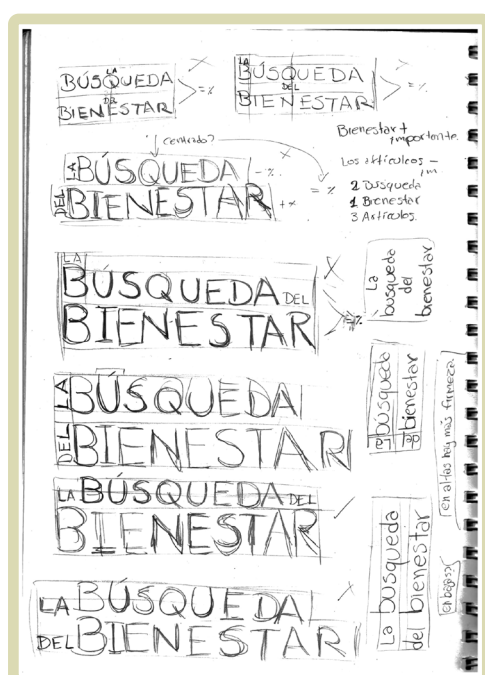 LA
BÚSQUEDA
DEL
BIENESTAR
= %
LA
BÚSQUEDA
DEL
BIENESTAR
= %
centrado?
LA BÚSQUEDA - %
DEL BIENESTAR + %
= %
Bienestar +
importante.
Los artículos -
im.
2 Búsqueda
1 Bienestar
3 Artículos.
LA
BÚSQUEDA DEL
BIENESTAR
= %
La
búsqueda
del
bienestar
LA BÚSQUEDA
DEL BIENESTAR
La búsqueda
del bienestar
en altas hay más firmeza.
LA BÚSQUEDA DEL
BIENESTAR
La búsqueda
del bienestar
LA BÚSQUEDA
DEL BIENESTAR